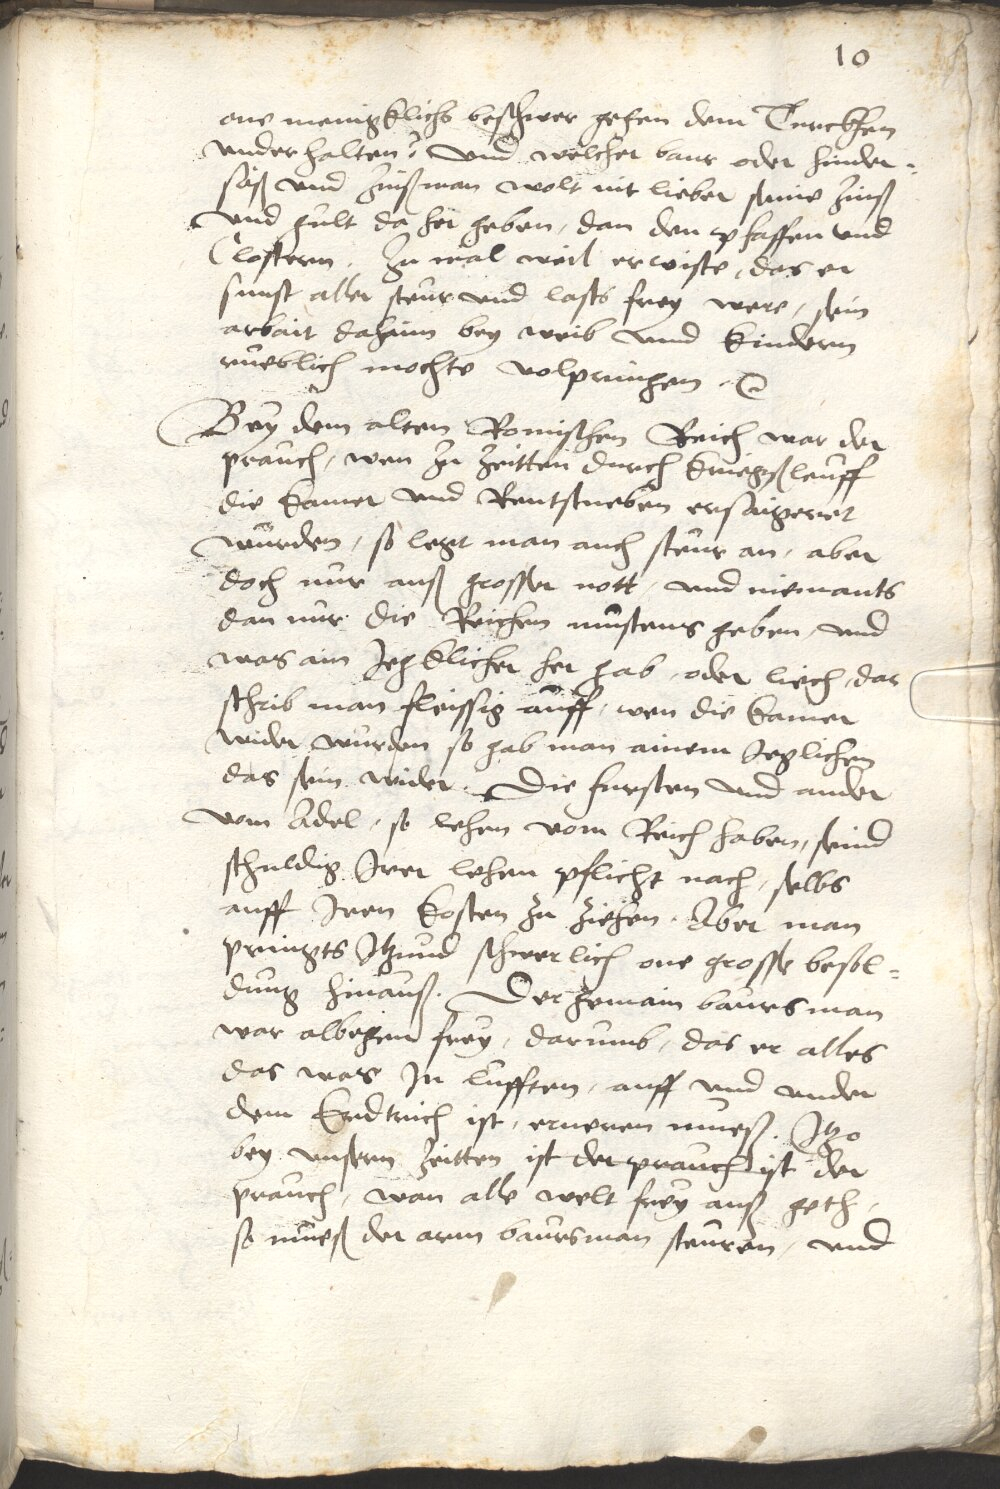 10
one menigklichs beschwer gegen dem Turckhen
underhalten? Und welcher baur oder hinder-
säß und zinßman wolt nit lieber seine zinß
und gült da her geben, dan den pfaffen und
Clostern. Zu mal weil er wiste, das er
sunst aller steur und lasts frey were, sein
arbait dahaim bey weib und kindern
rueblich mochte volpringen.
Bey dem alten Romischen Reich war der
prauch, wen zu Zeitten durch kriegsleuff
die Kamer und Rentstueben ersaigeret
würden, so legt man auch steur an, aber
doch nur auß grosser nott, und niemants
dan nur die Reichen müstens geben, und
was ain Jegklicher her gab, oder liech, das
schrib man fleissig auff, wen die Kamer
wider wurden so gab man ainem Jeglichen
das sein wider. Die fursten und ander
vom Adel, so lehen vom Reich haben, seind
schuldig Irer lehen pflicht nach, selbs
auff Iren kosten zu ziehen. Aber man
pringts Itzund schwerlich one grosse besol-
dung hinauß. Der gemain baursman
war albegen frey, darumb, das er alles
das was In lufften, auff und under
dem Erdtrich ist, erneren mueß. Itzo
bey unsern Zeitten ist der prauch ist der
prauch, wan alle welt frey auß geth,
so mueß der arm baursman steuren, und